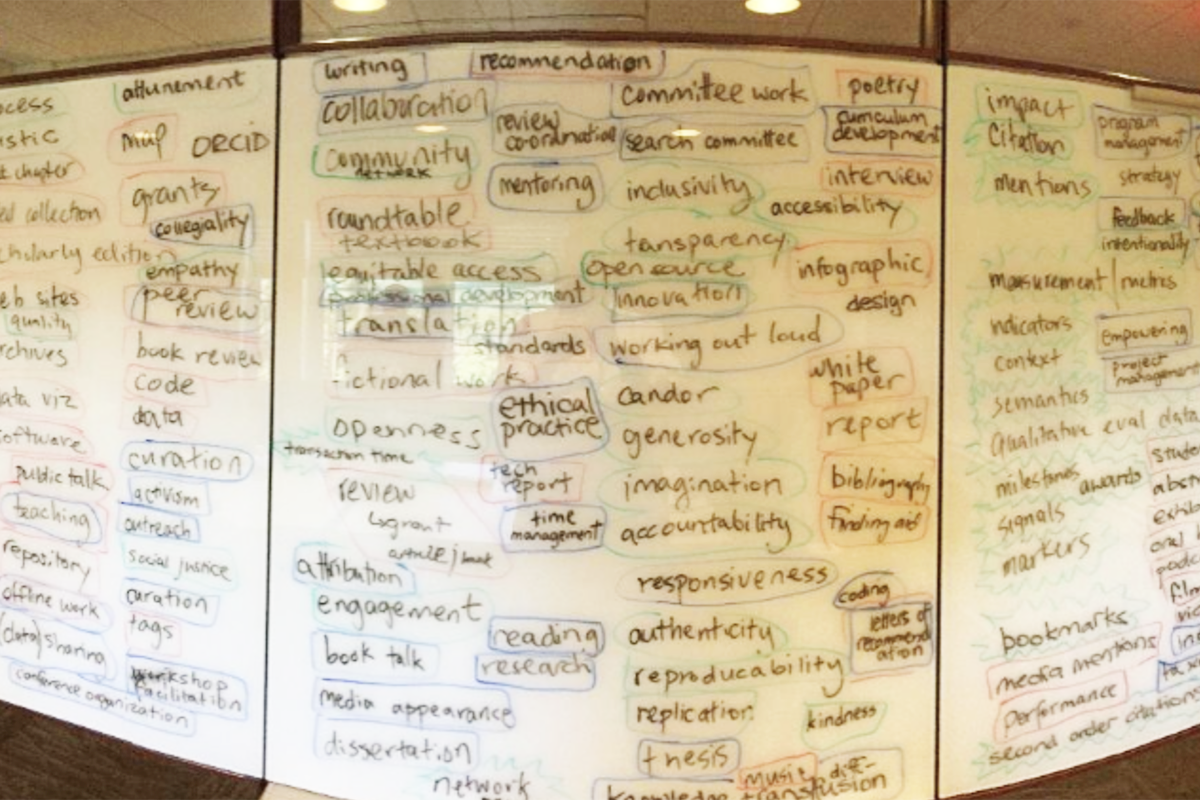 attunement
mup
ORCID
chapter
grants
collection
collegiality
edition
empathy
peer
review
sites
quality
book review
viz
code
data
public talk
curation
activism
teaching
outreach
repository
social justice
offline work
curation
(data) sharing
tags
workshop
facilitation
conference organization
writing
recommendation
collaboration
review
coordination
community
network
mentoring
roundtable
textbook
equitable access
professional development
translation
standards
fictional work
ethical
practice
openness
transaction time
tech
report
review
grant
time
management
article / book
attribution
engagement
reading
book talk
research
media appearance
dissertation
network
committee work
search committee
inclusivity
accessibility
transparency
open source
innovation
working out loud
candor
generosity
imagination
accountability
responsiveness
authenticity
reproducability
replication
thesis
music
knowledge transfusion
poetry
curriculum
development
interview
infographic
design
white
paper
report
bibliography
finding aid
coding
letters of
recommend
ation
kindness
impact
citation
mentions
program
management
strategy
feedback
intentionality
measurement / metrics
indicators
empowering
context
project
management
semantics
qualitative eval data
milestones
awards
signals
markers
bookmarks
media mentions
performance
second order citations